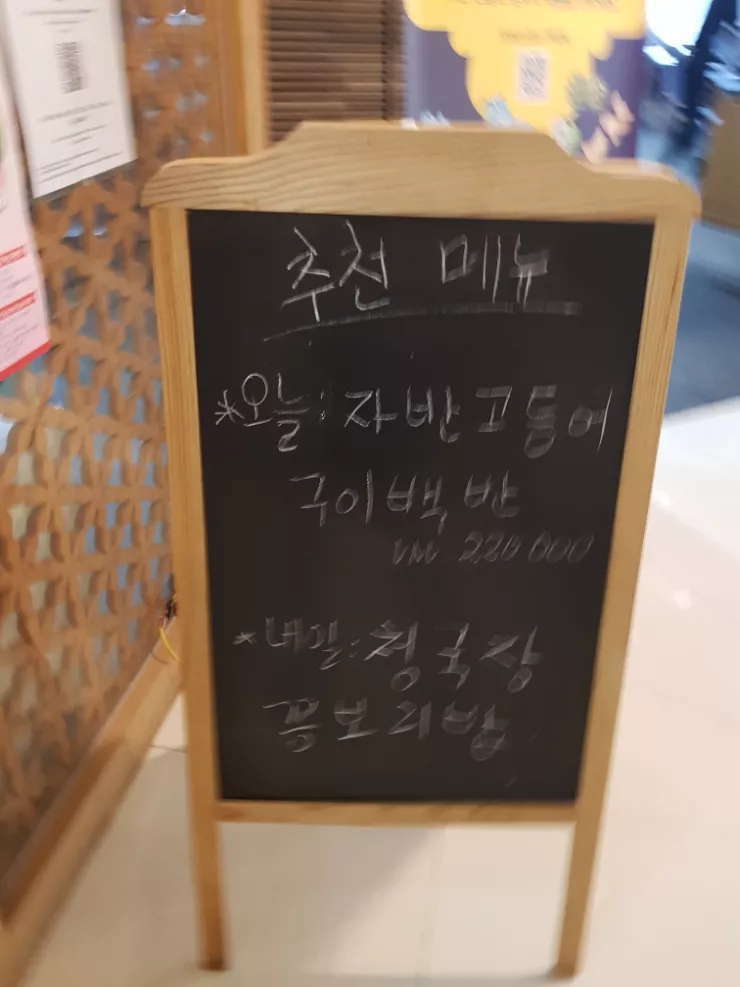 추천 메뉴
*오늘: 자반고등어
구이백반
VN 220 000
*내일: 청국장
꽁보리밥